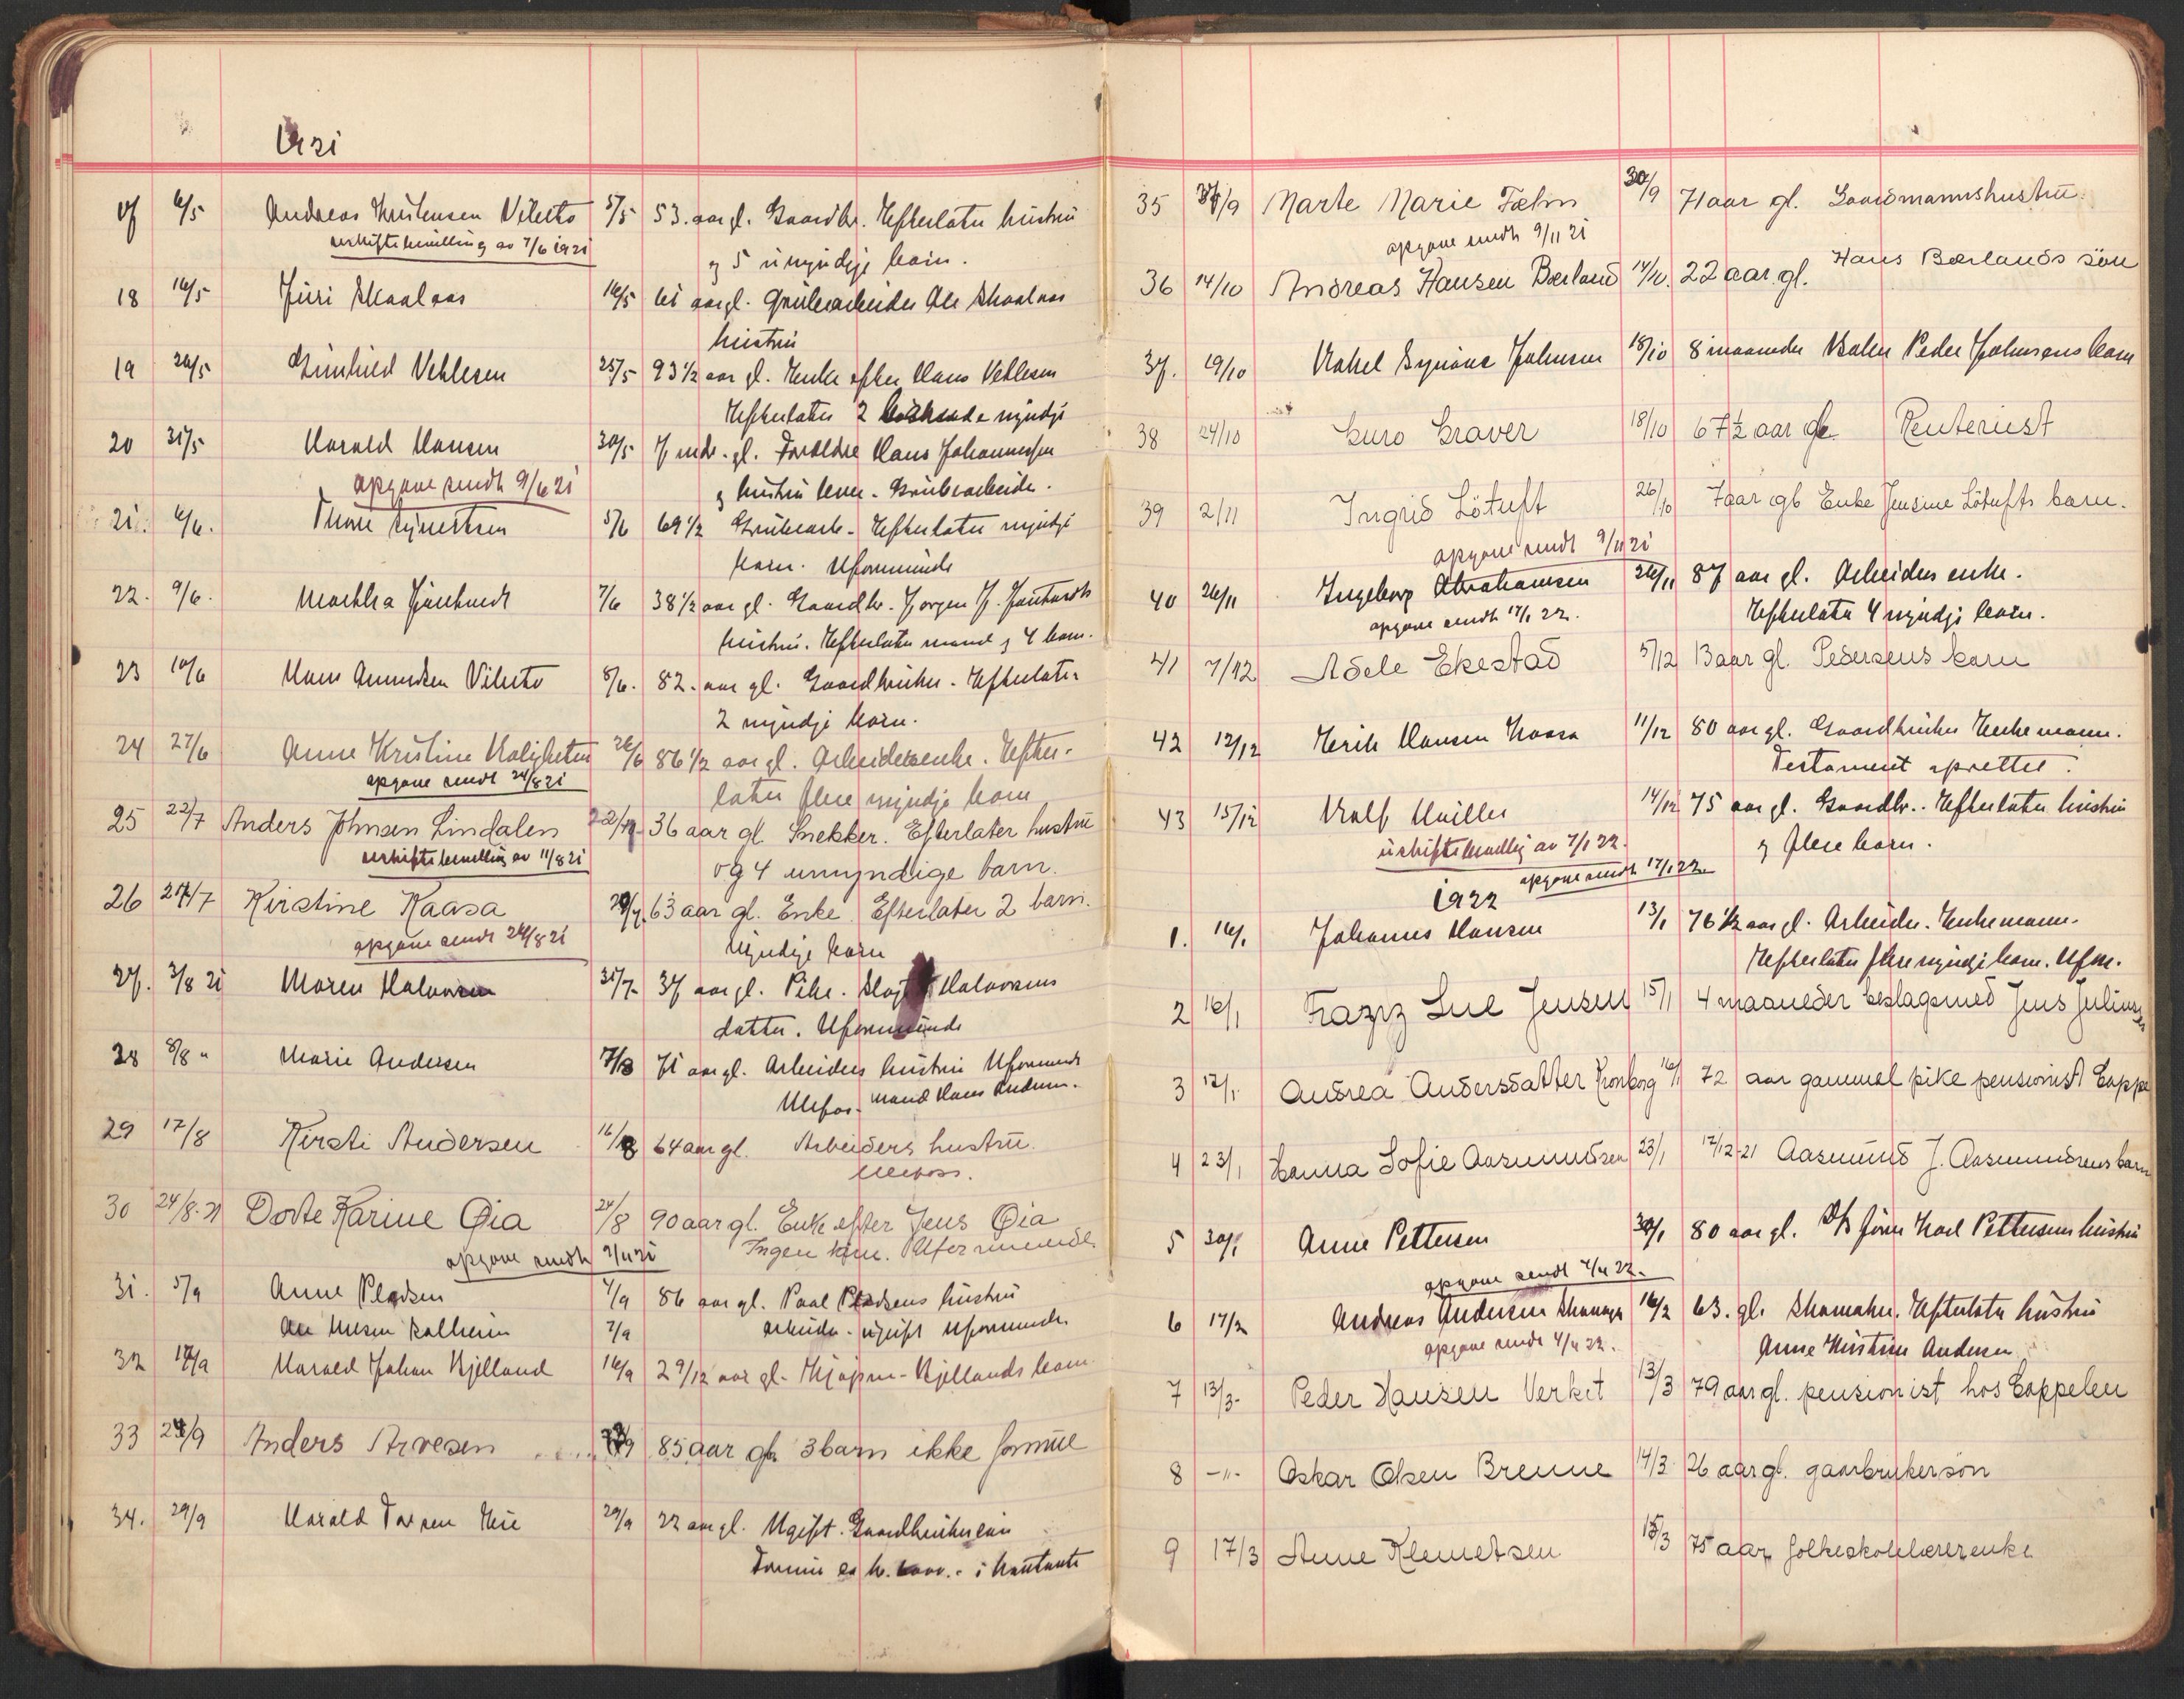 1921
17 6/5 Andreas Kristensen Vibeto 5/5 53. aar gl. Gaardbr. Efterlater hustru
uskiftebevilling av 7/6 1921
og 5 umyndige barn.
18 16/5 Juri Skaalaas 14/5 61 aar gl. Grubearbeider Ole Skaalaas
hustru
19 26/5 Gunhild Vehlesen 25/5 93 1/2 aar gl. Enke efter Hans Vehlesen
Efterlater 2 myndige
20 31/5 Harald Hansen 30/5 7 mdr. gl. Forældre Hans Johannessen
opgave sendt 9/6 21
og hustru lever. Grubearbeider.
21. 6/6. 5/6 69 1/2 Grubearb. Efterlater myndige
barn. Uformuende
22. 9/6. Marthea 7/6 38 1/2 aar gl. Gaardbr. Jørgen J.
hustru. Efterlater mand og 4 barn.
23 10/6 Hans Amundsen Vibeto 8/6. 82. aar gl. Gaardbruker. Efterlater
2 myndige barn.
24 27/6 Anne Kristine 26/6 86 1/2 aar gl. Arbeiderenke. Efter-
opgave sendt 24/8 21
later flere myndige barn
25 22/7 Anders Johnsen Lindalen 22/7 36 aar gl. Snekker. Efterlater hustru
uskiftebevilling av 11/8 21
og 4 umyndige barn.
26 27/7 Kirstine Kaasa 63 aar gl. Enke. Efterlater 2 barn.
opgave sendt 24/8 21
Myndige barn
27. 3/8 21 Maren Halvorsen 31/7 37 aar gl. Pike. Halvorsens
datter. Uformuende
28 8/8 " Marie Andersen 7/8 71 aar gl. Arbeiders hustru Uformuende
Ulefos. Mand Hans Andersen.
29 17/8 Kirsti Andersen 16/8 64 aar gl. Arbeiders hustru.
Ulefoss.
30 24/8-21 Dorte Karine Øia 24/8 90 aar gl. Enke efter Jens Øia
Ingen barn. Uformuende.
opgave sendt 9/11 21
31. 5/9 Anne Pladsen 4/9 86 aar gl. Paal Pladsens hustru
7/9 arbeider. ugift uformuende
32 17/9 Harald Johan Kjelland 16/9 2 9/12 aar gl. Kjellands barn
33 24/9 Anders Arvesen 85 aar gl. 3 barn ikke formue
34. 29/9 Harald 29/9 22 aar gl. Ugift. Gaardbrukersøn
Formue ca kr. i kontanter
35 Marte Marie Fæhn 30/9 71 aar gl. Gaardmannshustru.
opgave sendt 9/11 21
36 14/10 Andreas Hansen Bærland 14/10. 22 aar. gl. Hans Bærlands søn
37. 19/10 Rakel Synøve Johnsen 18/10 8 maaneder Peder Johnsens barn
38 24/10 Guro Graver 18/10 67 1/2 aar gl. Renterist
39 2/11 Ingrid Løtuft 26/10 7 aar gl Enke Jensine Løtufts barn.
opgave sendt 9/11 21
40 26/11 Ingeborg Abrahamsen 26/11 87 aar gl. Arbeiders enke.
opgave sendt 17/1 22.
Efterlater 4 myndige barn.
41 7/12 Adele Ekestad 5/12 13 aar gl. Pedersens barn
42 12/12 Erik Hansen Kaasa 11/12 80 aar gl. Gaardbruker Enkemann.
Testament oprettet.
43 15/12 Rolf 14/12 75 aar gl. Gaardbr. Efterlater hustru
uskiftebevilling av 7/1 22.
og flere barn.
opgave sendt 17/1 22.
1922
1. 14/1 Johannes Hansen 13/1 76 1/2 aar gl. Arbeider. Enkemann.
Efterlater flere myndige barn. Ufm.
2 16/1 Lue Jensen 15/1 4 maaneder beslagsmed Jens
3 17/1. Andrea Andersdatter Kronborg 16/1 72 aar gammel pike pensionist
4 23/1 Hanna Sofie Aasmundsen 23/1 17/12-21 Aasmund J. Aasmundsens barn
5 30/1 Anne Pettersen 30/1 80 aar gl. Karl Pettersens hustru
opgave sendt 4/4 22.
6 17/2 Andreas Andersen 16/2 63. gl. Skomaker. Efterlater hustru
opgave sendt 4/4 22.
Anne Kirstine Andersen
7 13/3. Peder Hansen Verket 13/3 79 aar gl. pensionist hos Cappelen
8 -"- Oskar Olsen Brenne 14/3 26 aar gl. gaarbrukersøn
9 17/3 Anne Klemetsen 15/3 75 aar folkeskolelærerenke